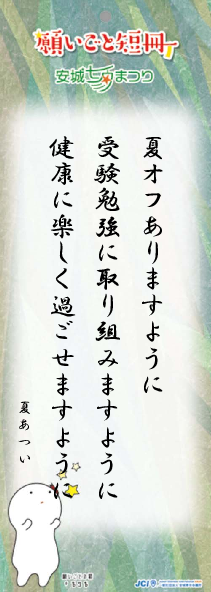 願いごと短冊
安城七夕まつり
夏オフありますように
受験勉強に取り組みますように
健康に楽しく過ごせますように
夏あつい
JCI